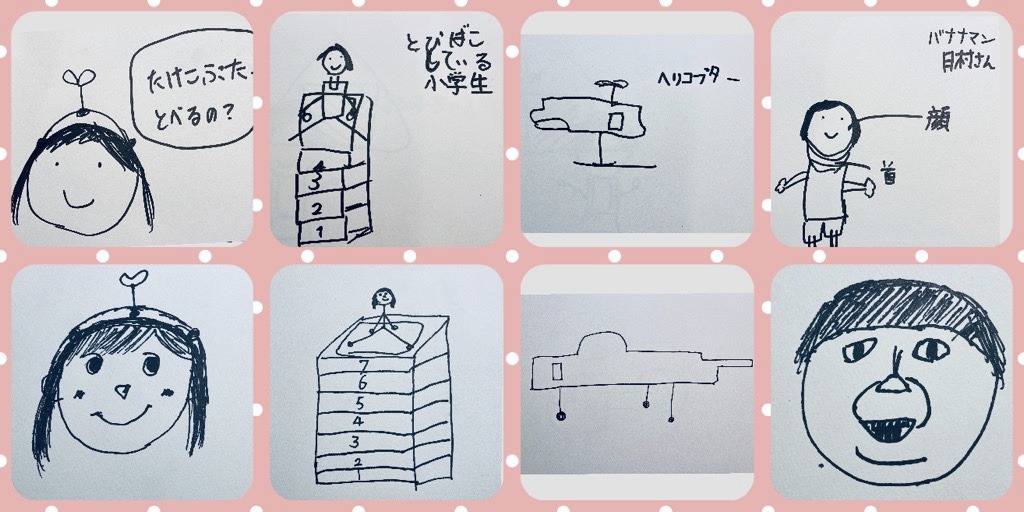 たけこぷたー
とべるの?
とびばこ
している
小学生
4
3
2
1
ヘリコプター
バナナマン
日村さん
顔
首
7
6
5
4
3
2
1